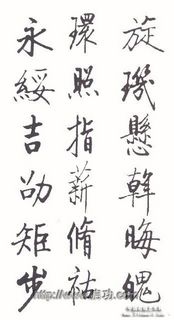 旋璣懸斡晦魄
環照指薪脩祜
永綏吉劭矩步